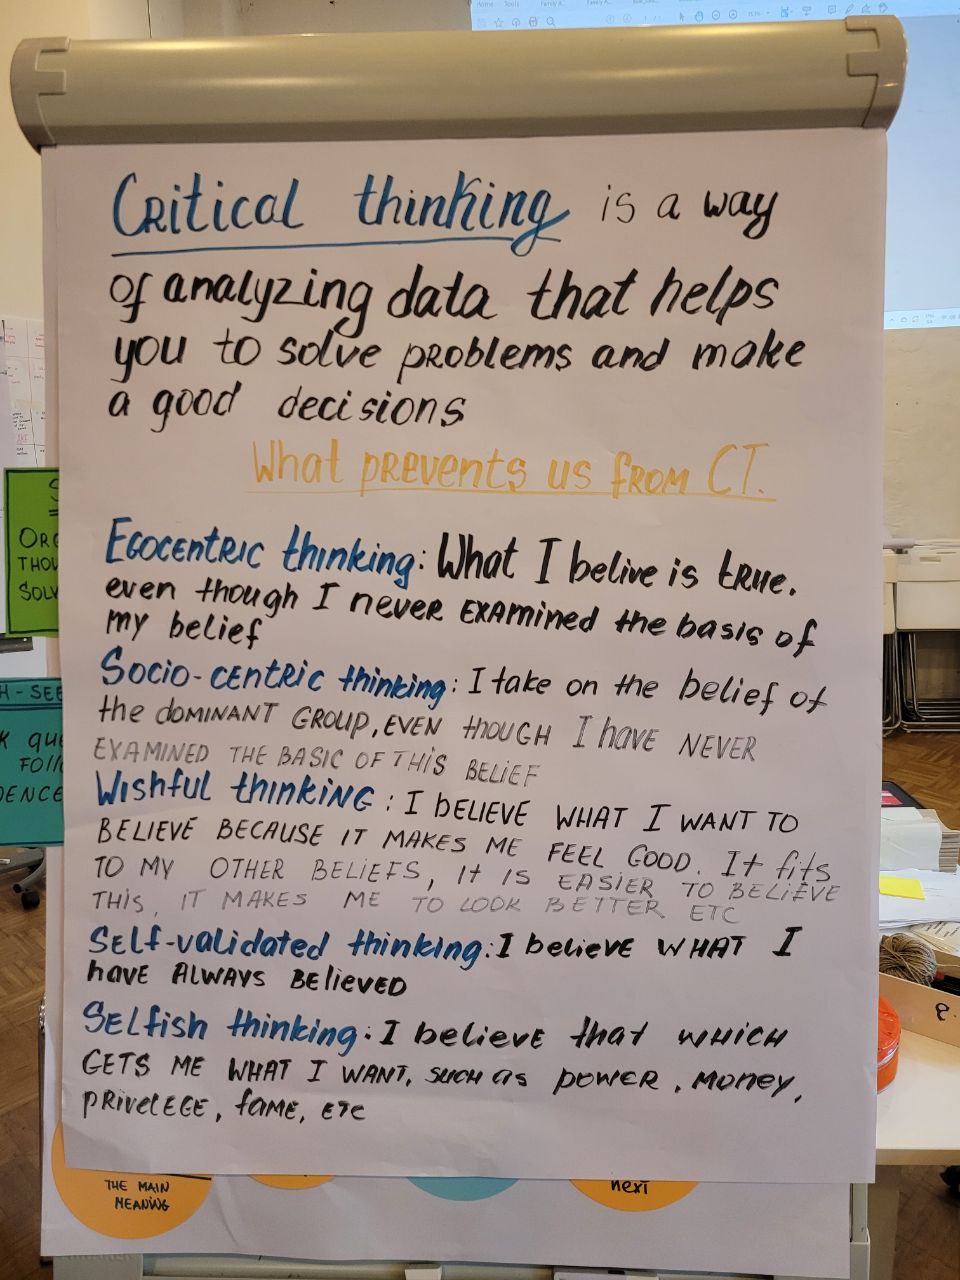 Critical thinking is a way
of analyzing data that helps
you to solve problems and make
a good decisions
What prevents us from CT.
Egocentric thinking: What I belive is true.
even though I never examined the basis of
my belief
Socio-centric thinking: I take on the belief of
the DOMINANT GROUP, EVEN though I have NEVER
EXAMINED THE BASIC OF THIS BELIEF
Wishful thinking: I believe WHAT I WANT TO
BELIEVE BECAUSE IT MAKES ME FEEL GOOD. It fits
TO MY OTHER BELIEFS, It IS EASIER TO BELIEVE
THIS, IT MAKES ME TO LOOK BETTER ETC
Self-validated thinking: I believe WHAT I
have ALWAYS BELIEVED
Selfish thinking: I believe that WHICH
GETS ME WHAT I WANT, such as power, money,
privelege, fame, etc
THE MAIN
MEANING
next